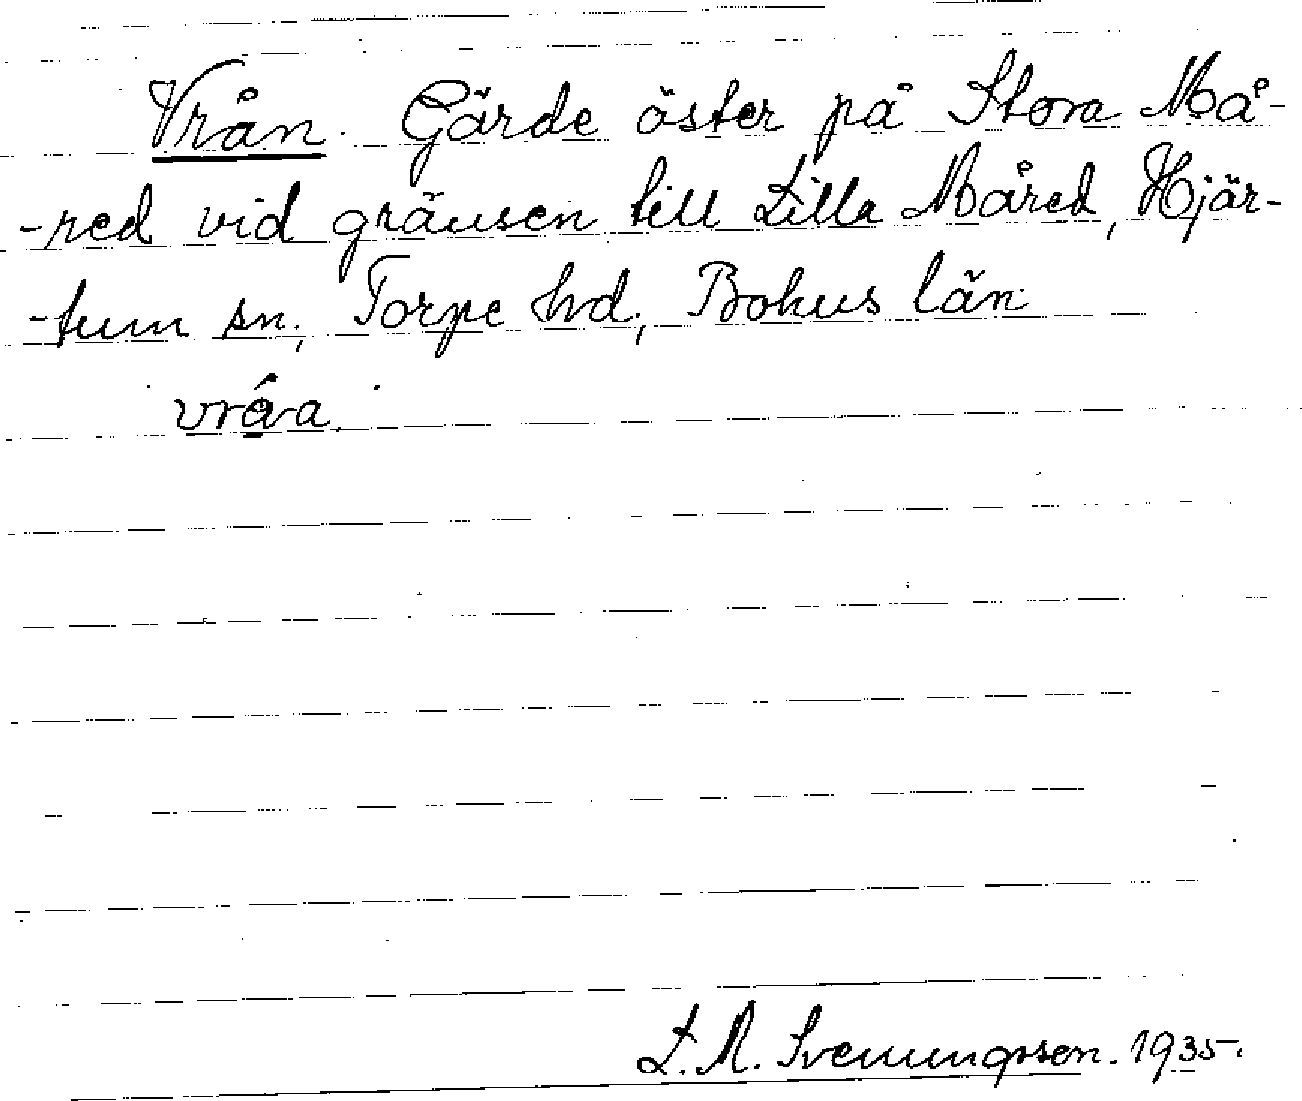 Vrån. Gärde öster på Stora Må-
-red vid gränsen till Lilla Måred, Hjär-
-tum sn., Torpe hd., Bohus län.
vrå̱a.
L. M. Svenungsson. 1935.